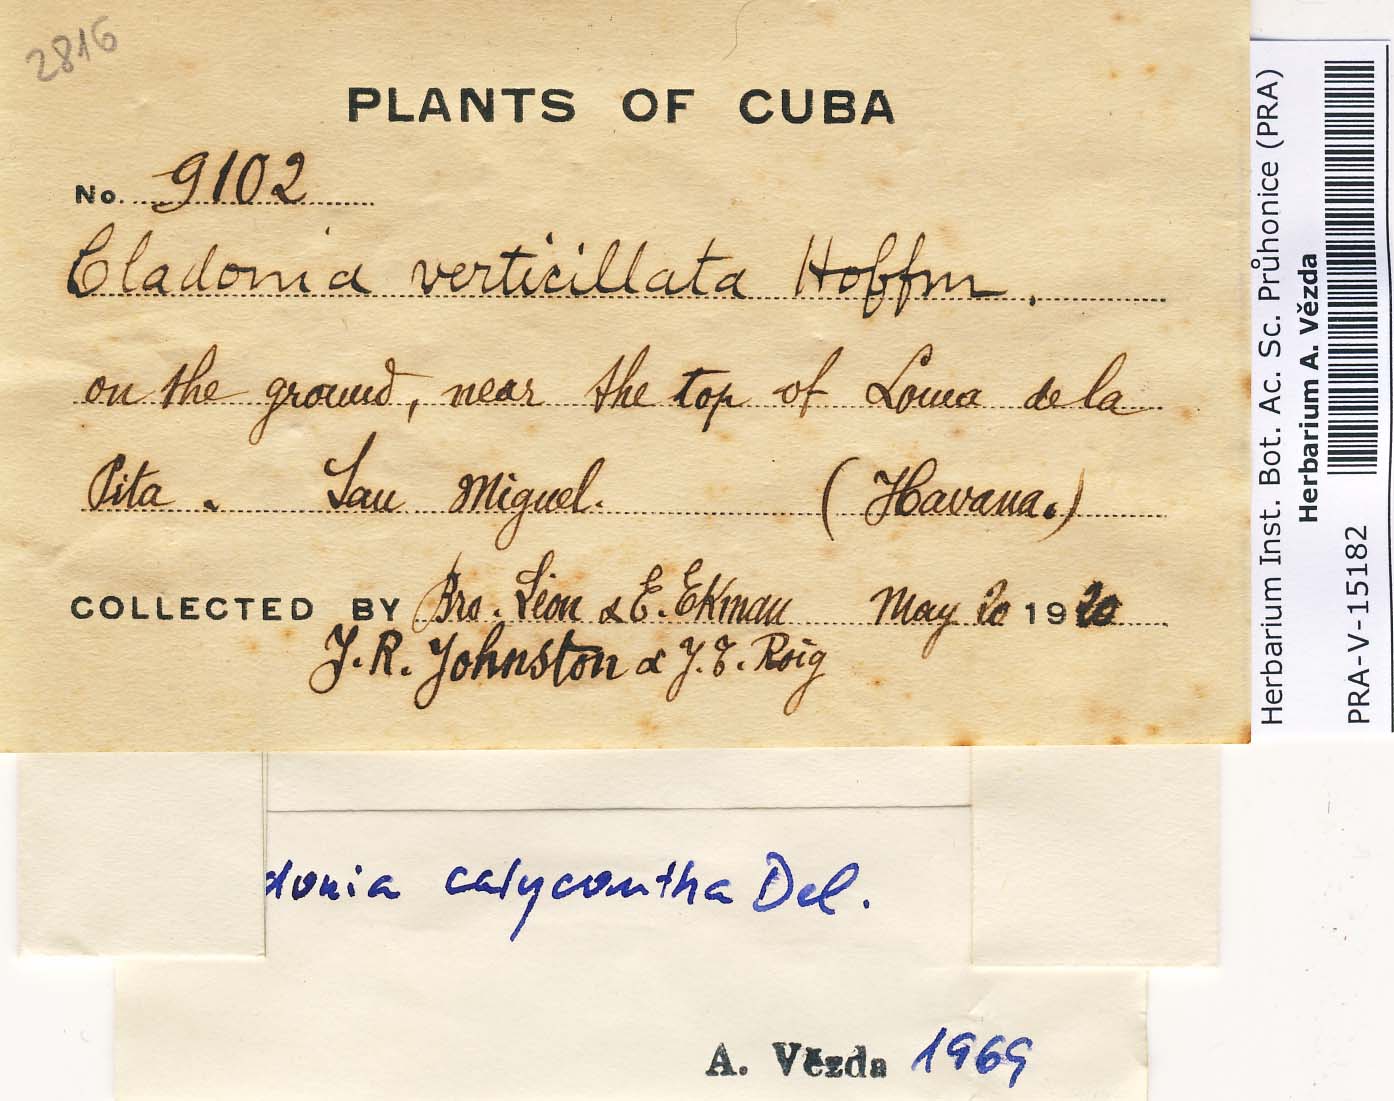 2816
PLANTS OF CUBA
No. 9102
Cladonia verticillata Hoffm.
on the ground, near the top of Loma de la
Pita. San Miguel. (Havana.)
COLLECTED BY Bro. Léon & E. Ekman May 20 1920
J. R. Johnston & J. T. Roig
donia calycantha Del.
A. Vězda 1969
Herbarium Inst. Bot. Ac. Sc. Průhonice (PRA)
Herbarium A. Vězda
PRA-V-15182